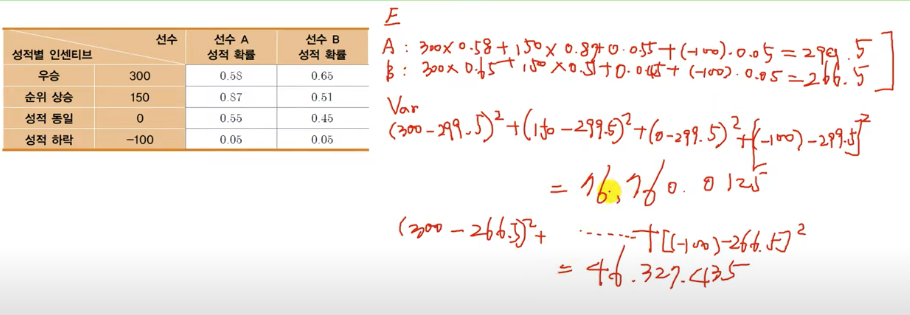 선수
성적별 인센티브
선수 A
성적 확률
선수 B
성적 확률
우승 300 0.58 0.65
순위 상승 150 0.87 0.51
성적 동일 0 0.55 0.45
성적 하락 -100 0.05 0.05
E
A : 300×0.58+150×0.87+0.055+(-100).0.05=299.5
B : 300×0.65+150×0.51+0.045+(-100).0.05=266.5
Var
(300-299.5)²+(150-299.5)²+(0-299.5)²+[(-100)-299.5]²
= 76,760.0125
(300-266.5)²+ ......+[(-100)-266.5]²
= 46.327.435